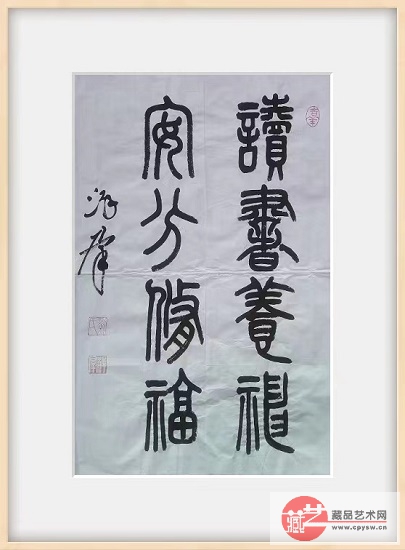 讀書養神
安分脩福
藏艺
藏品艺术网
www.cpysw.cn